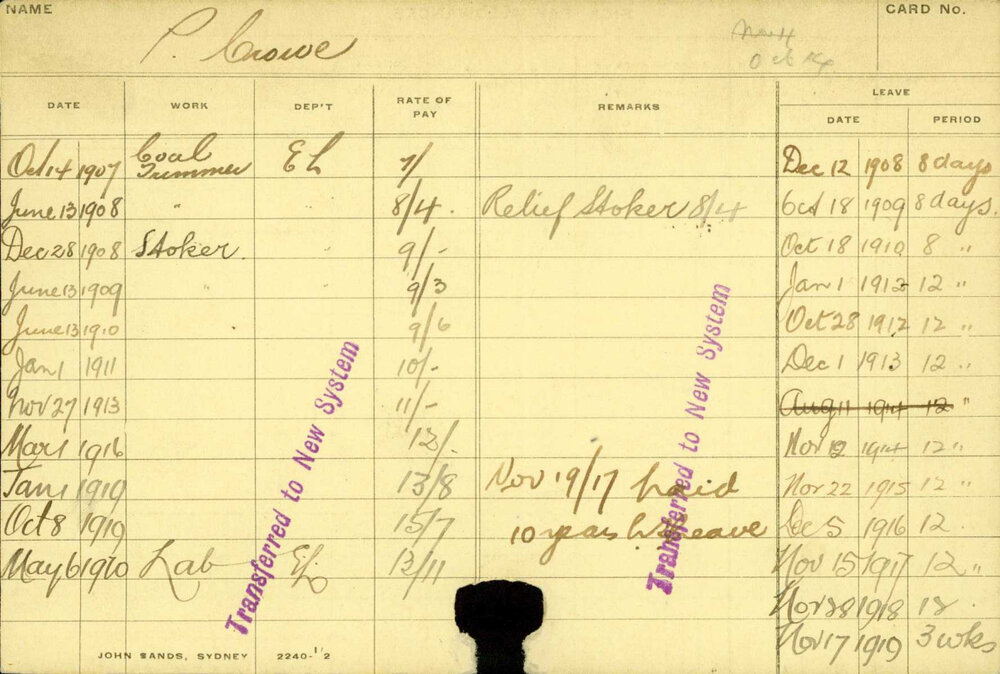 NAME
CARD No.
P. Crowe
Oct 14
DATE WORK DEP'T RATE OF PAY REMARKS LEAVE
DATE PERIOD
Oct 14 1907 Coal Trimmer EL 7/ Dec 12 1908 8 days
June 13 1908 " 8/4. Relief Stoker 8/4 Oct 18 1909 8 days.
Dec 28 1908 Stoker. " 9/- Oct 18 1910 8 "
June 13 1909 " " 9/3 Jan 1 1912 12 "
June 13 1910 9/6 Oct 28 1912 12 "
Jan 1 1911 10/- Dec 1 1913 12 "
Nov 27 1913 11/- Aug 11 1914 12 "
Mar 1 1916 12/. Nov 12 1914 12 "
Jan 1 1919 13/8 Nov 19/17 paid Nov 22 1915 12 "
Oct 8 1919 15/7 10 years leave Dec 5 1916 12.
May 6 1920 Lab EL 13/11 Nov 15 1917 12 "
Nov 28 1918 12.
Nov 17 1919 3 wks
Transferred to New System
Transferred to New System
JOHN SANDS, SYDNEY 2240-1/2